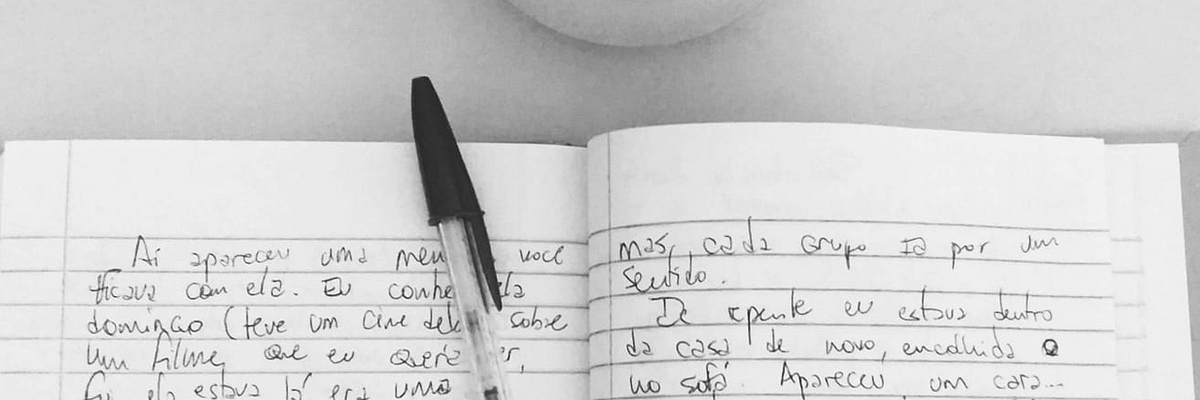 Aí apareceu uma men você
ficava com ela. Eu conhe ela
domingo (teve um cine deb sobre
um filme que eu queria er,
fui ela estava lá era uma
mas, cada grupo ia por um
sentido.
De repente eu estava dentro
da casa de novo, encolhida
no sofá. Apareceu um cara...